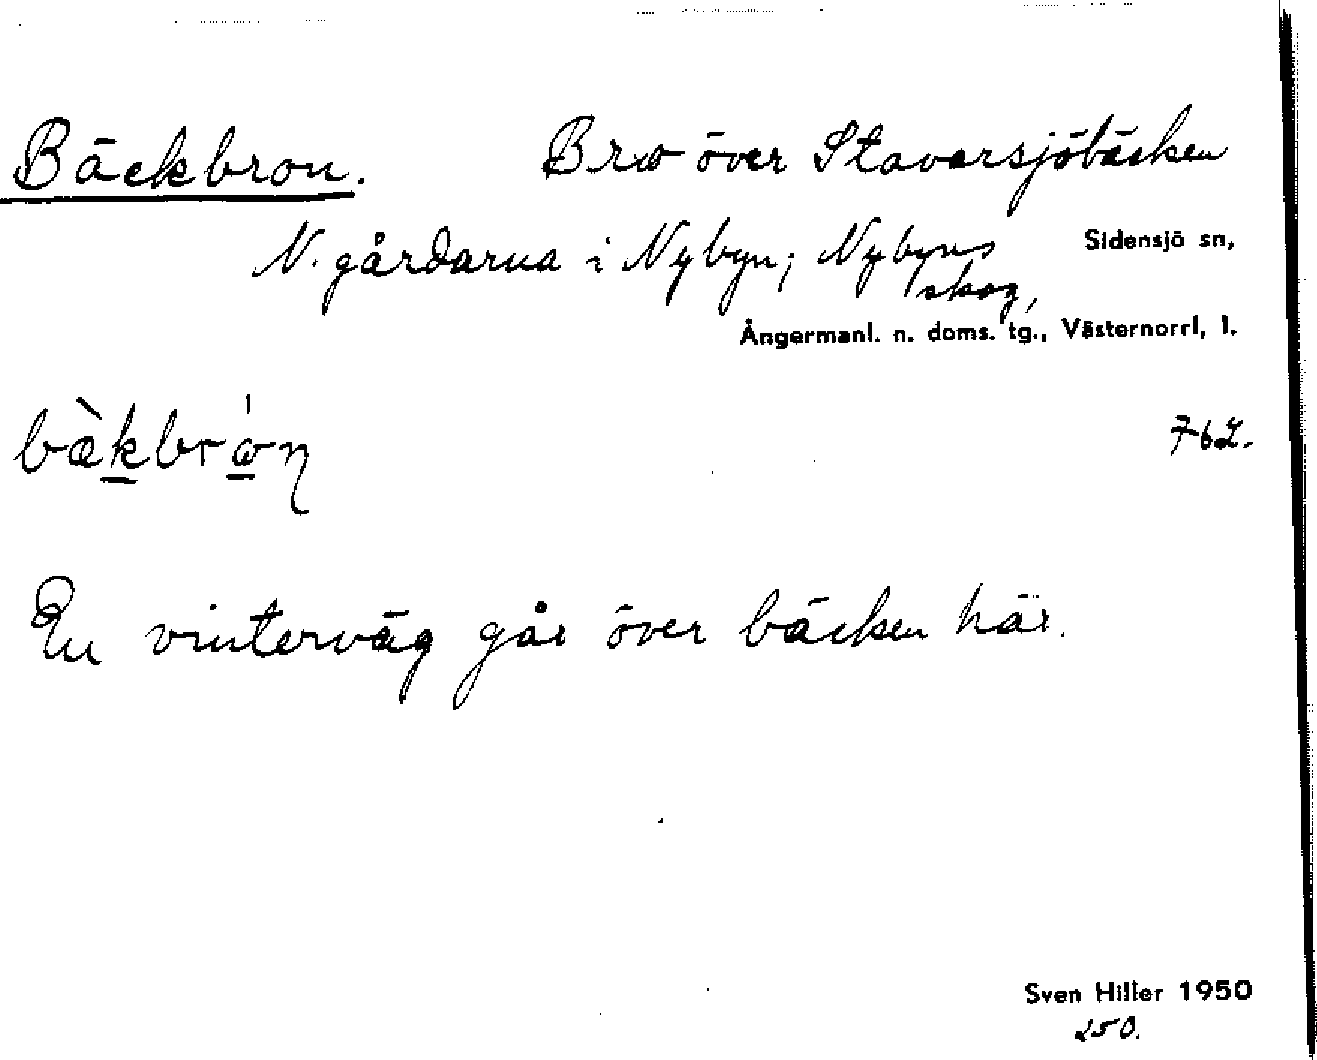 Bäckbron. Bro över Stavarsjöbäcken
N. gårdarna i Nybyn; Nybyns Sidensjö sn,
skog,
Ångermanl. n. doms. tg., Västernorrl, l.
bæ̀kbrón 762.
En vinterväg går över bäcken här.
Sven Hiller 1950
250.